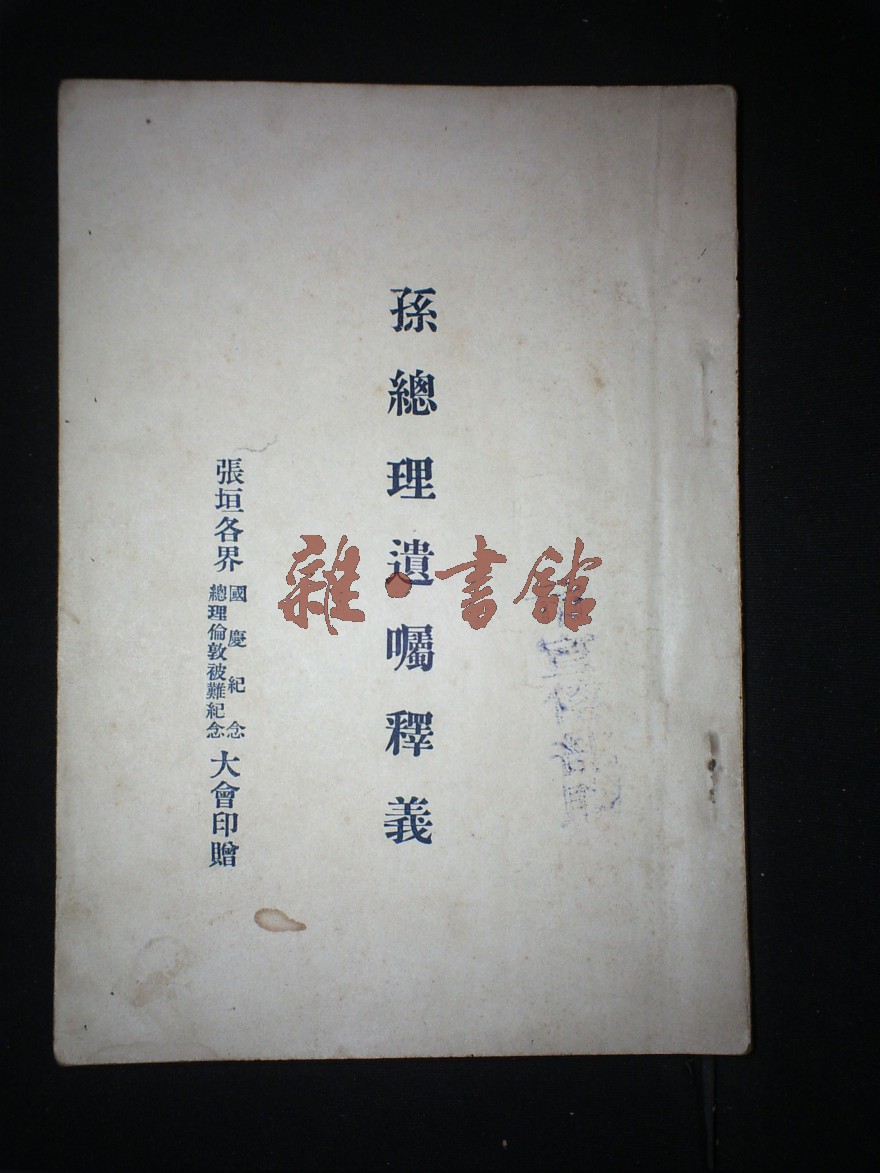 孫總理遺囑釋義
雜·書館
張垣各界
國慶紀念
總理倫敦被難紀念
大會印贈